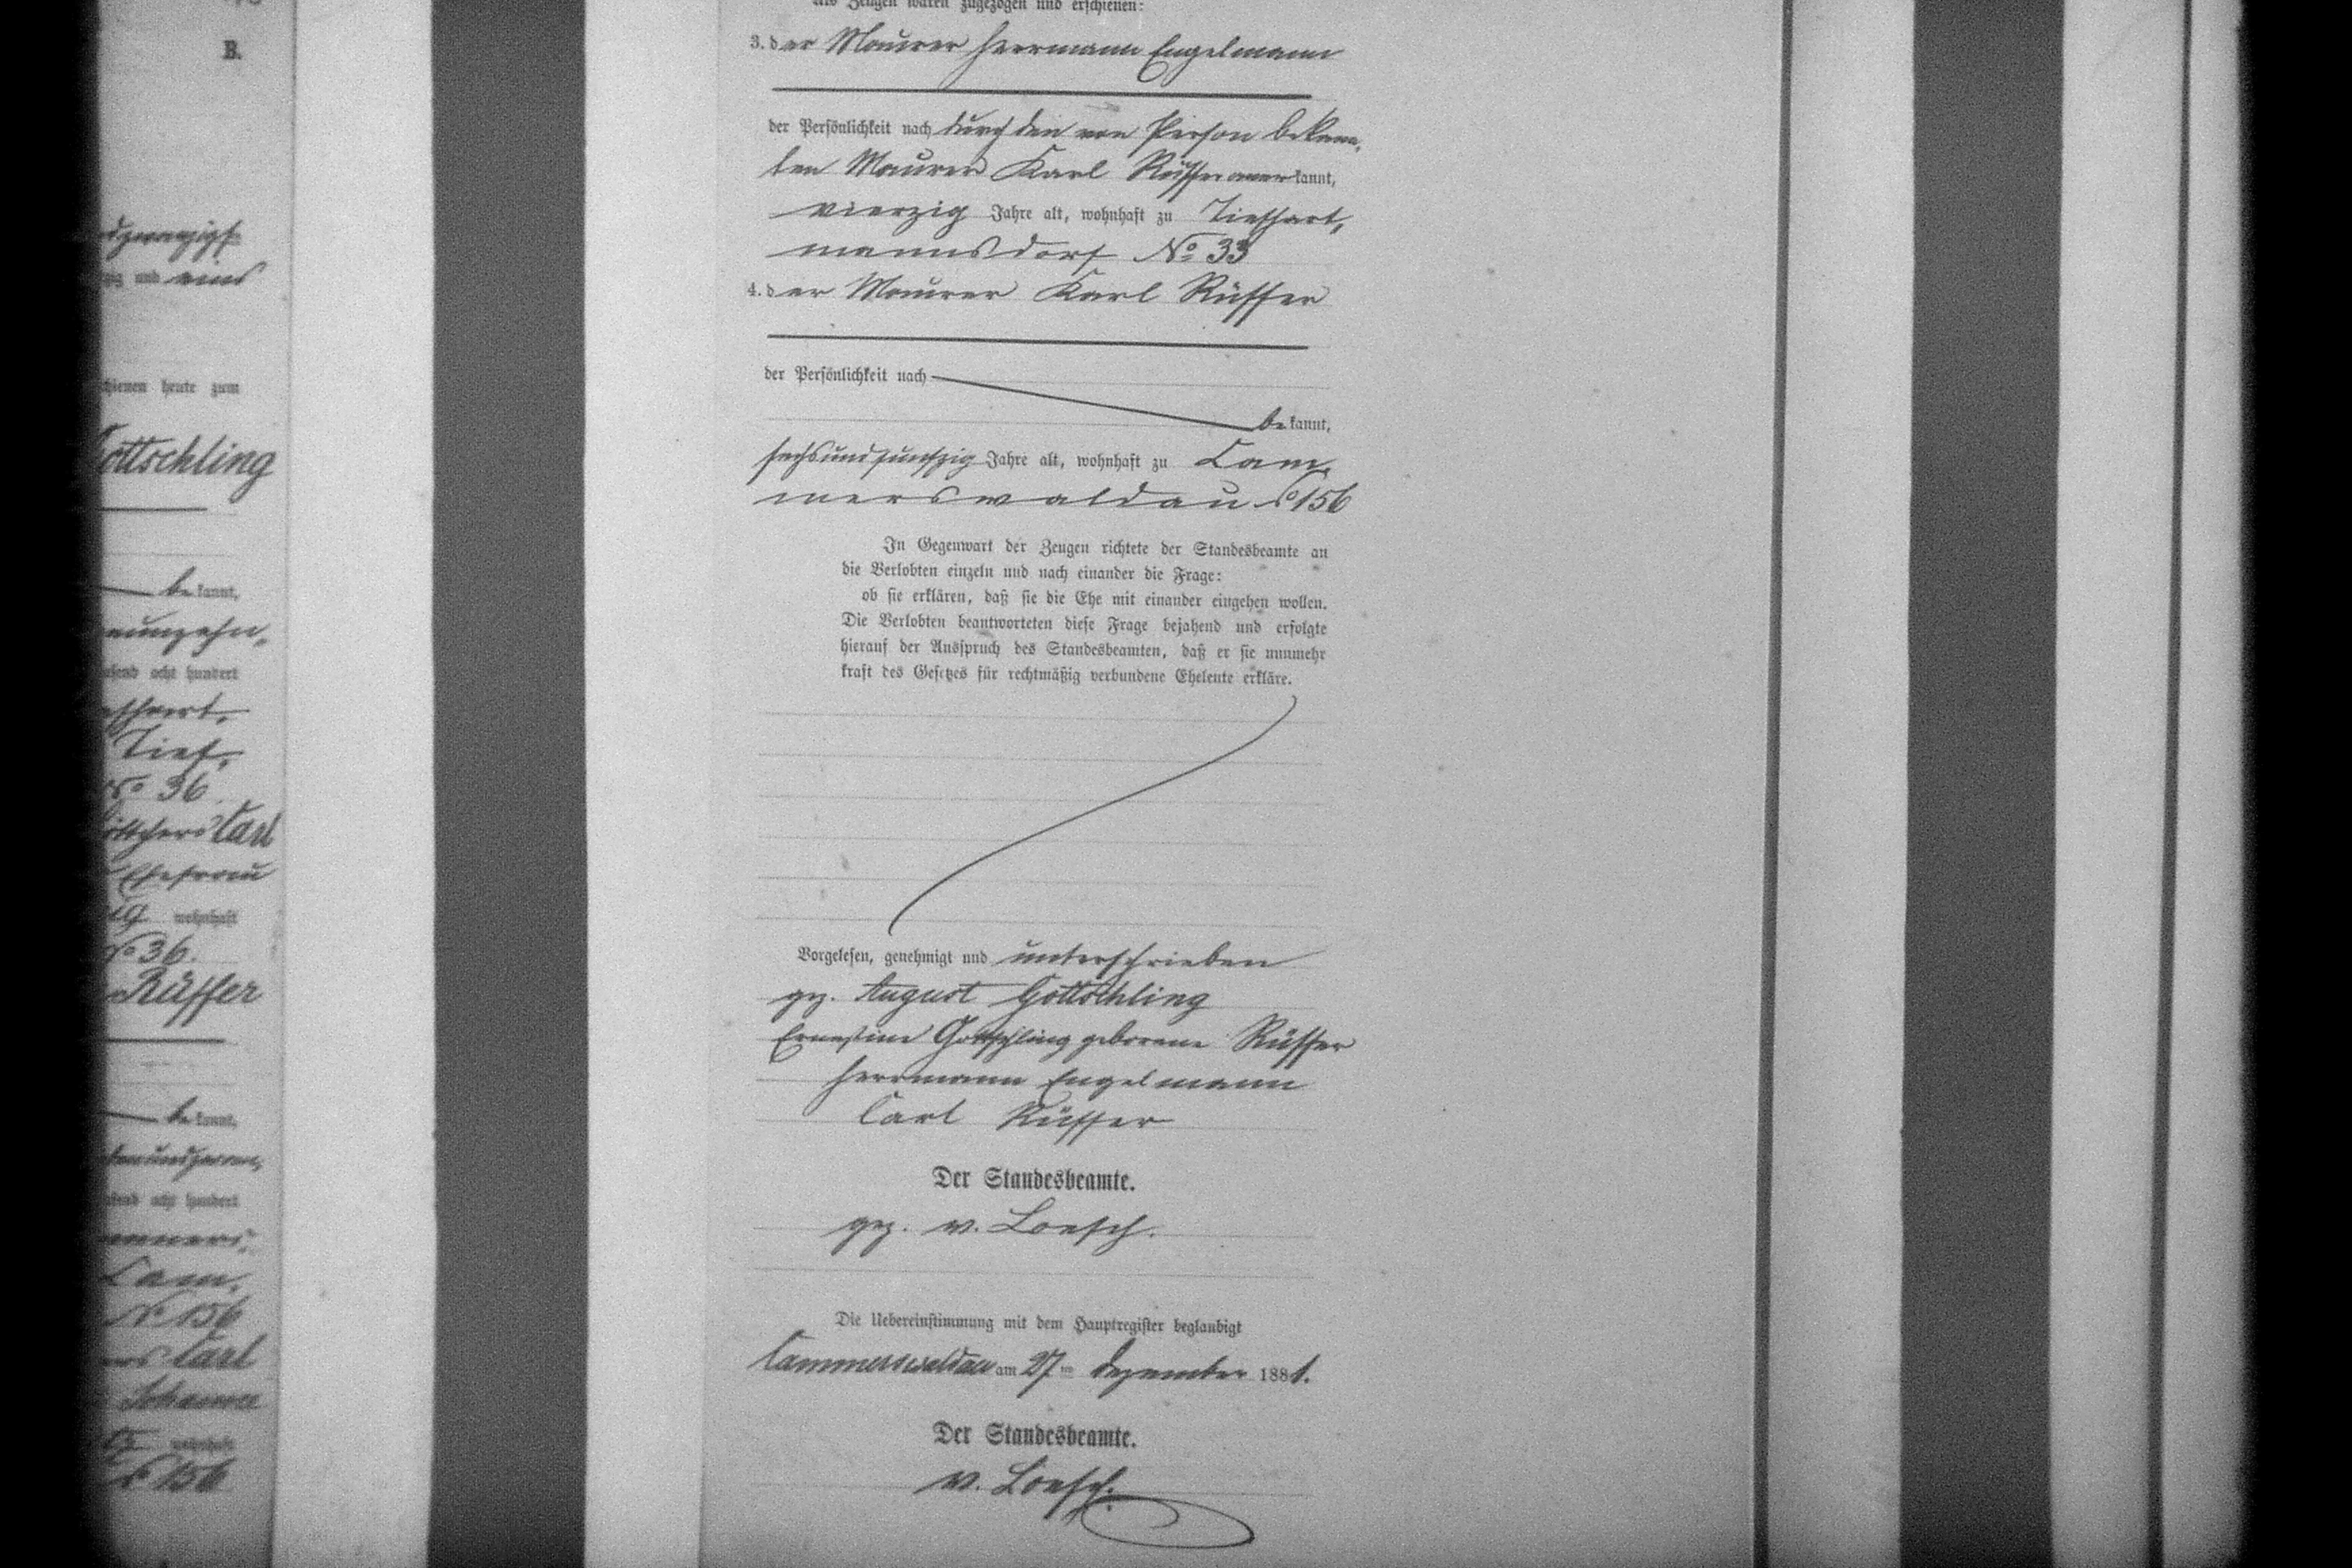 B.
und eins
heute zum
Gottschling
bekannt,
neunzehn-
acht hundert
Tief-
No 36
Carl
Ehefrau
wohnhaft
No 36.
Rüffer
bekannt,
acht hundert
Cam-
No 156
Carl
wohnhaft
156
Als Zeugen waren zugezogen und erschienen:
3. der Maurer Herrmann Engelmann
der Persönlichkeit nach durch den von Person bekann-
ten Maurer Karl Rüffer anerkannt,
vierzig Jahre alt, wohnhaft zu Tiefhart-
mannsdorf No 33
4. der Maurer Karl Rüffer
der Persönlichkeit nach
bekannt,
sechsundfunfzig Jahre alt, wohnhaft zu Cam-
merswaldau No 156
In Gegenwart der Zeugen richtete der Standesbeamte an
die Verlobten einzeln und nach einander die Frage:
ob sie erklären, daß sie die Ehe mit einander eingehen wollen.
Die Verlobten beantworteten diese Frage bejahend und erfolgte
hierauf der Ausspruch des Standesbeamten, daß er sie nunmehr
kraft des Gesetzes für rechtmäßig verbundene Eheleute erkläre.
Vorgelesen, genehmigt und unterschrieben
gez. August Gottschling
Ernestine Gottschling geborene Rüffer
Herrmann Engelmann
Carl Rüffer
Der Standesbeamte.
gez. v. Loesch.
Die Uebereinstimmung mit dem Hauptregister beglaubigt
Cammerswaldau am 27ten Dezember 1881.
Der Standesbeamte.
v. Loesch.